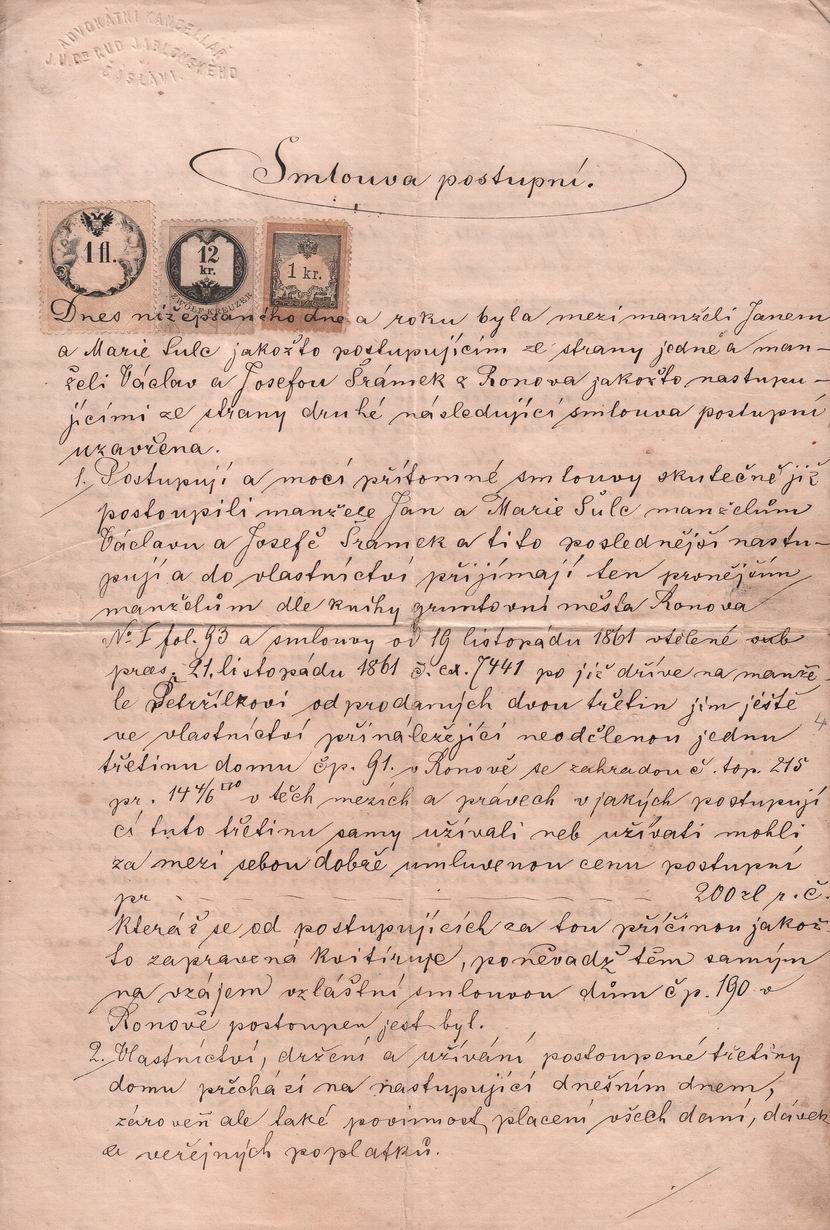 ADVOKÁTNÍ KANCELÁŘ
J.U.Dr. RUD. JABLONSKÉHO
ČÁSLAVI.
Smlouva postupní.
1 fl.
12
kr.
ZWÖLF KREUZER
1 kr.
Dnes nížepsaného dne a roku byla mezi manželi Janem
a Marie Šulc jakožto postupujícím ze strany jedné a man-
želi Václav a Josefou Šrámek z Ronova jakožto nastupu-
jícími ze strany druhé následující smlouva postupní
uzavřena.
1. Postupují a mocí přítomné smlouvy skutečně již
postoupili manžele Jan a Marie Šulc manželům
Václavu a Josefě Šrámek a tito poslednější nastu-
pují a do vlastnictví přijímají ten prvnějším
manželům dle knihy gruntovní města Ronova
No I fol. 93 a smlouvy od 19 listopádu 1861 vtělené sub
praes. 21. listopádu 1861 č. ex. 7441 po již dříve na manže-
le Petržílkovi odprodaných dvou třetin jim ještě
ve vlastnictví přináležející neodčlenou jednu
třetinu domu čp. 91. v Ronově se zahradou č. top. 215
pr. 14 4/6 v těch mezích a právech v jakých postupují
cí tuto třetinu samy užívali neb užívati mohli
za mezi sebou dobře umluvenou cenu postupní
pr 200 zl r. č.
kteráž se od postupujících za tou příčinou jakož-
to zapravená kvitíruje, poněvadž těm samým
na vzájem vzláštní smlouvou dům čp. 190 v
Ronově postoupen jest byl.
2. Vlastnictví, držení a užívání postoupené třetiny
domu přechází na nastupující dnešním dnem,
zároveň ale také povinnost placení všech daní, dávek
a veřejných poplatků.